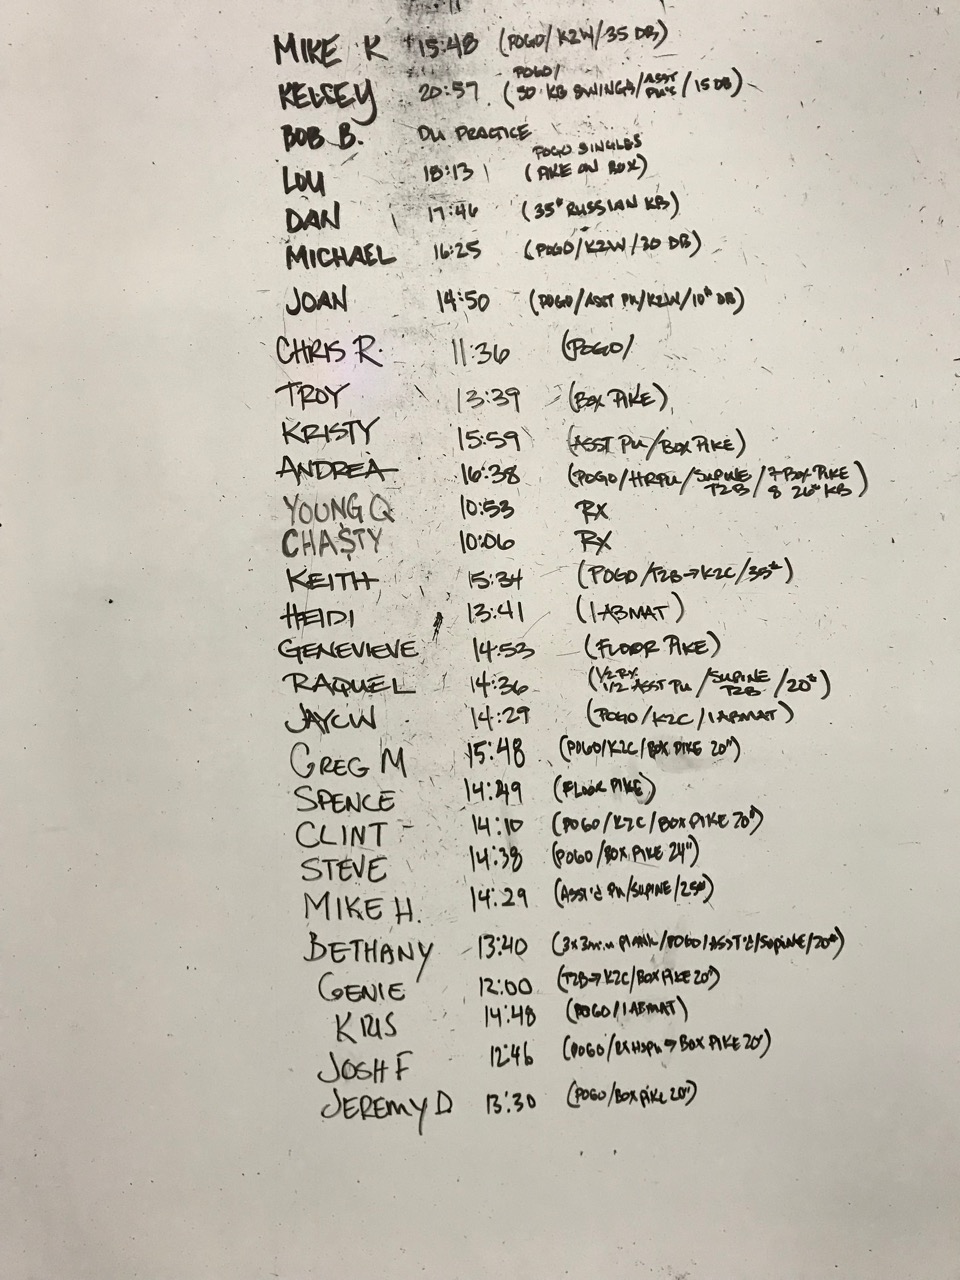 MIKE K 15:48 (POGO/K2W/35 DB)
KELSEY 20:57 (POGO/ 50 KB SWINGS/ASST PU'S/15 DB)
BOB B. DU PRACTICE
LOU 18:13 POGO SINGLES (PIKE ON BOX)
DAN 17:46 (35# RUSSIAN KB)
MICHAEL 16:25 (POGO/K2W/30 DB)
JOAN 14:50 (POGO/ASST PU/K2W/10# DB)
CHRIS R. 11:36 (POGO/
TROY 13:39 (BOX PIKE)
KRISTY 15:59 (ASST PU/BOX PIKE)
ANDREA 16:38 (POGO/HRPU/SUPINE T2B/7 BOX PIKE 8 26# KB)
YOUNG Q 10:53 RX
CHA$TY 10:06 RX
KEITH 15:34 (POGO/T2B→K2C/35#)
HEIDI 13:41 (1 ABMAT)
GENEVIEVE 14:53 (FLOOR PIKE)
RAQUEL 14:36 (1/2 RX 1/2 ASST PU/SUPINE T2B/20#)
JAYCW 14:29 (POGO/K2C/1 ABMAT)
GREG M 15:48 (POGO/K2C/BOX PIKE 20")
SPENCE 14:49 (FLOOR PIKE)
CLINT 14:10 (POGO/K2C/BOX PIKE 20")
STEVE 14:38 (POGO/BOX PIKE 24")
MIKE H. 14:29 (ASST'D PU/SUPINE/25#)
BETHANY 13:40 (3x3min PLANK/POGO/ASST'D/SUPINE/20#)
GENIE 12:00 (T2B→K2C/BOX PIKE 20")
KRIS 14:48 (POGO/1 ABMAT)
JOSH F 12:46 (POGO/RX HSPU→BOX PIKE 20")
JEREMY D 13:30 (POGO/BOX PIKE 20")